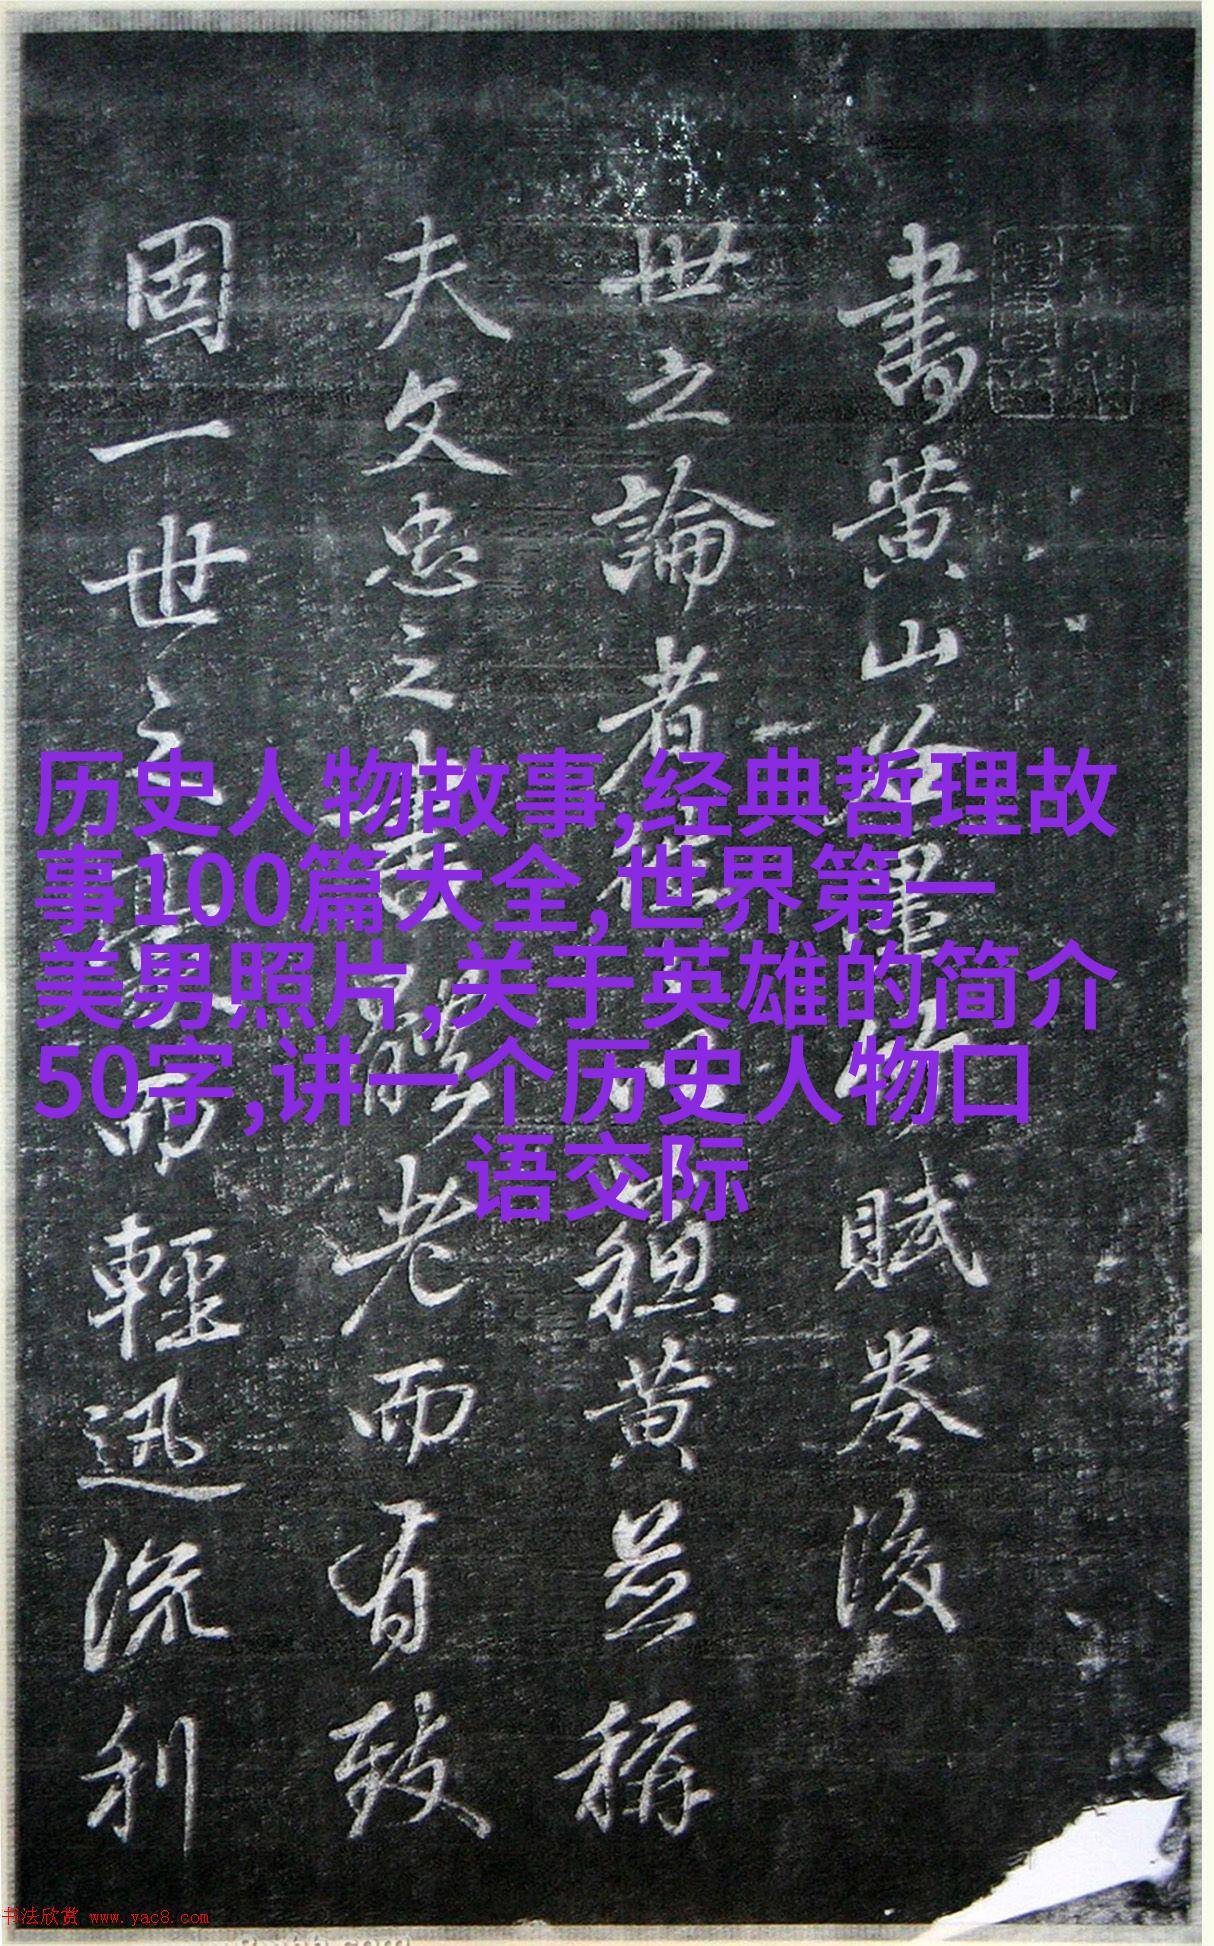 历史人物故事,经典哲理故
事100篇大全,世界第一
美男照片,关于英雄的简介
50字,讲一个历史人物口
语交际
書黄山谷賦卷後
世之論者黄並稱
夫文忠之老而有致
固一世之而輕迅流利
书法欣赏 www.yac8.com